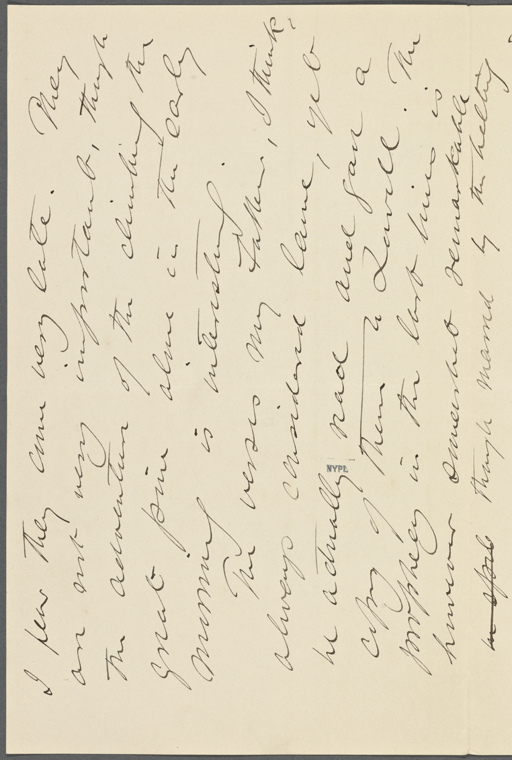 I fear they came very late. They
are not very important, though
the adventure of the climbing the
great pine alone in the early
morning is interesting.
The verses my father, I think,
always considered lame, yet
he actually read and gave a
copy of them to Lowell. The
prophecy in the last lines is
however somewhat remarkable
in spite though marred by the telling
NYPL